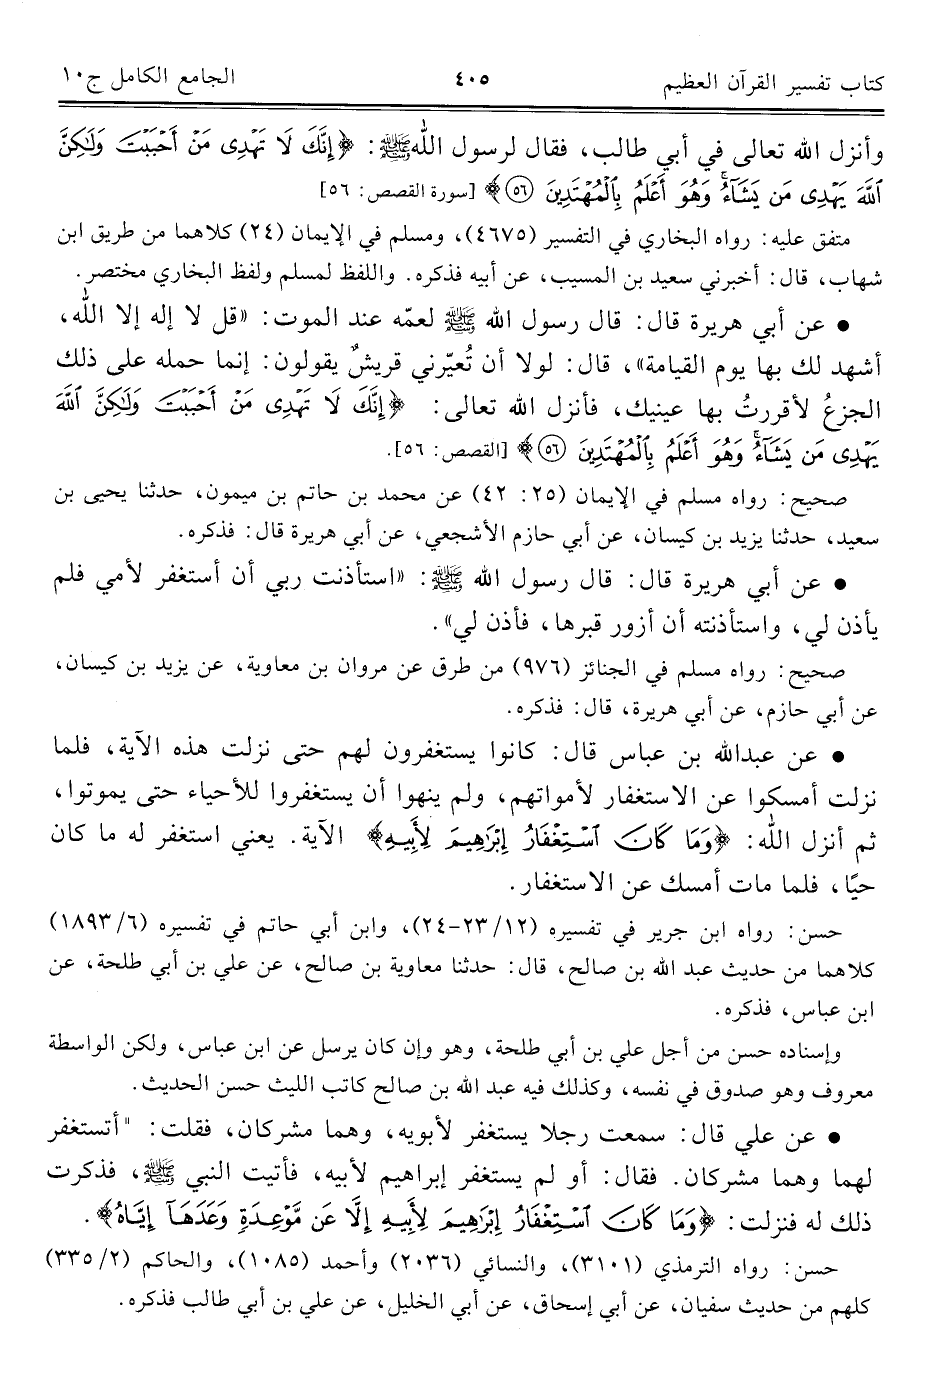 كتاب تفسير القرآن العظيم ٤٠٥ الجامع الكامل ج١٠
وأنزل الله تعالى في أبي طالب، فقال لرسول الله ﷺ: ﴿إِنَّكَ لَا تَهْدِى مَنْ أَحْبَبْتَ وَلَٰكِنَّ
ٱللَّهَ يَهْدِى مَن يَشَآءُ ۚ وَهُوَ أَعْلَمُ بِٱلْمُهْتَدِينَ ٥٦﴾ [سورة القصص: ٥٦]
متفق عليه: رواه البخاري في التفسير (٤٦٧٥)، ومسلم في الإيمان (٢٤) كلاهما من طريق ابن
شهاب، قال: أخبرني سعيد بن المسيب، عن أبيه فذكره. واللفظ لمسلم ولفظ البخاري مختصر.
● عن أبي هريرة قال: قال رسول الله ﷺ لعمّه عند الموت: «قل لا إله إلا الله،
أشهد لك بها يوم القيامة»، قال: لولا أن تُعيّرني قريشٌ يقولون: إنما حمله على ذلك
الجزعُ لأقررتُ بها عينيك، فأنزل الله تعالى: ﴿إِنَّكَ لَا تَهْدِى مَنْ أَحْبَبْتَ وَلَٰكِنَّ ٱللَّهَ
يَهْدِى مَن يَشَآءُ ۚ وَهُوَ أَعْلَمُ بِٱلْمُهْتَدِينَ ٥٦﴾ [القصص: ٥٦].
صحيح: رواه مسلم في الإيمان (٢٥: ٤٢) عن محمد بن حاتم بن ميمون، حدثنا يحيى بن
سعيد، حدثنا يزيد بن كيسان، عن أبي حازم الأشجعي، عن أبي هريرة قال: فذكره.
● عن أبي هريرة قال: قال رسول الله ﷺ: «استأذنت ربي أن أستغفر لأمي فلم
يأذن لي، واستأذنته أن أزور قبرها، فأذن لي».
صحيح: رواه مسلم في الجنائز (٩٧٦) من طرق عن مروان بن معاوية، عن يزيد بن كيسان،
عن أبي حازم، عن أبي هريرة، قال: فذكره.
● عن عبدالله بن عباس قال: كانوا يستغفرون لهم حتى نزلت هذه الآية، فلما
نزلت أمسكوا عن الاستغفار لأمواتهم، ولم ينهوا أن يستغفروا للأحياء حتى يموتوا،
ثم أنزل الله: ﴿وَمَا كَانَ ٱسْتِغْفَارُ إِبْرَٰهِيمَ لِأَبِيهِ﴾ الآية. يعني استغفر له ما كان
حيًا، فلما مات أمسك عن الاستغفار.
حسن: رواه ابن جرير في تفسيره (١٢/ ٢٣-٢٤)، وابن أبي حاتم في تفسيره (٦/ ١٨٩٣)
كلاهما من حديث عبد الله بن صالح، قال: حدثنا معاوية بن صالح، عن علي بن أبي طلحة، عن
ابن عباس، فذكره.
وإسناده حسن من أجل علي بن أبي طلحة، وهو وإن كان يرسل عن ابن عباس، ولكن الواسطة
معروف وهو صدوق في نفسه، وكذلك فيه عبد الله بن صالح كاتب الليث حسن الحديث.
● عن علي قال: سمعت رجلا يستغفر لأبويه، وهما مشركان، فقلت: "أتستغفر
لهما وهما مشركان. فقال: أو لم يستغفر إبراهيم لأبيه، فأتيت النبي ﷺ، فذكرت
ذلك له فنزلت: ﴿وَمَا كَانَ ٱسْتِغْفَارُ إِبْرَٰهِيمَ لِأَبِيهِ إِلَّا عَن مَّوْعِدَةٍ وَعَدَهَآ إِيَّاهُ﴾.
حسن: رواه الترمذي (٣١٠١)، والنسائي (٢٠٣٦) وأحمد (١٠٨٥)، والحاكم (٢/ ٣٣٥)
كلهم من حديث سفيان، عن أبي إسحاق، عن أبي الخليل، عن علي بن أبي طالب فذكره.